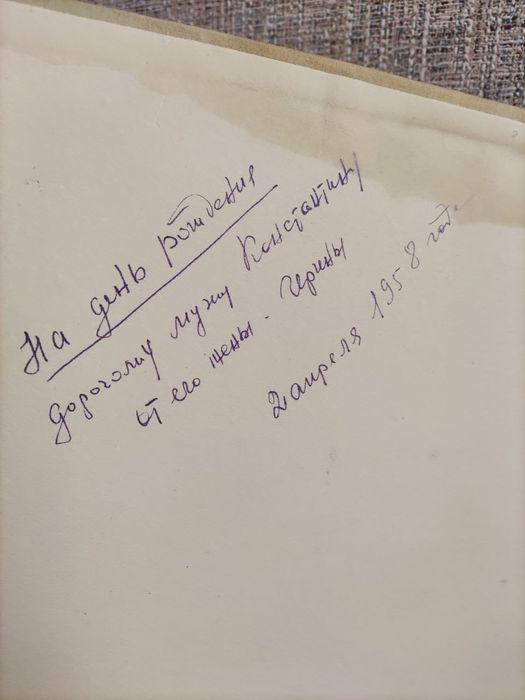 На день рождения
дорогому мужу Константину
от его жены - Герины
2 апреля 1958 года